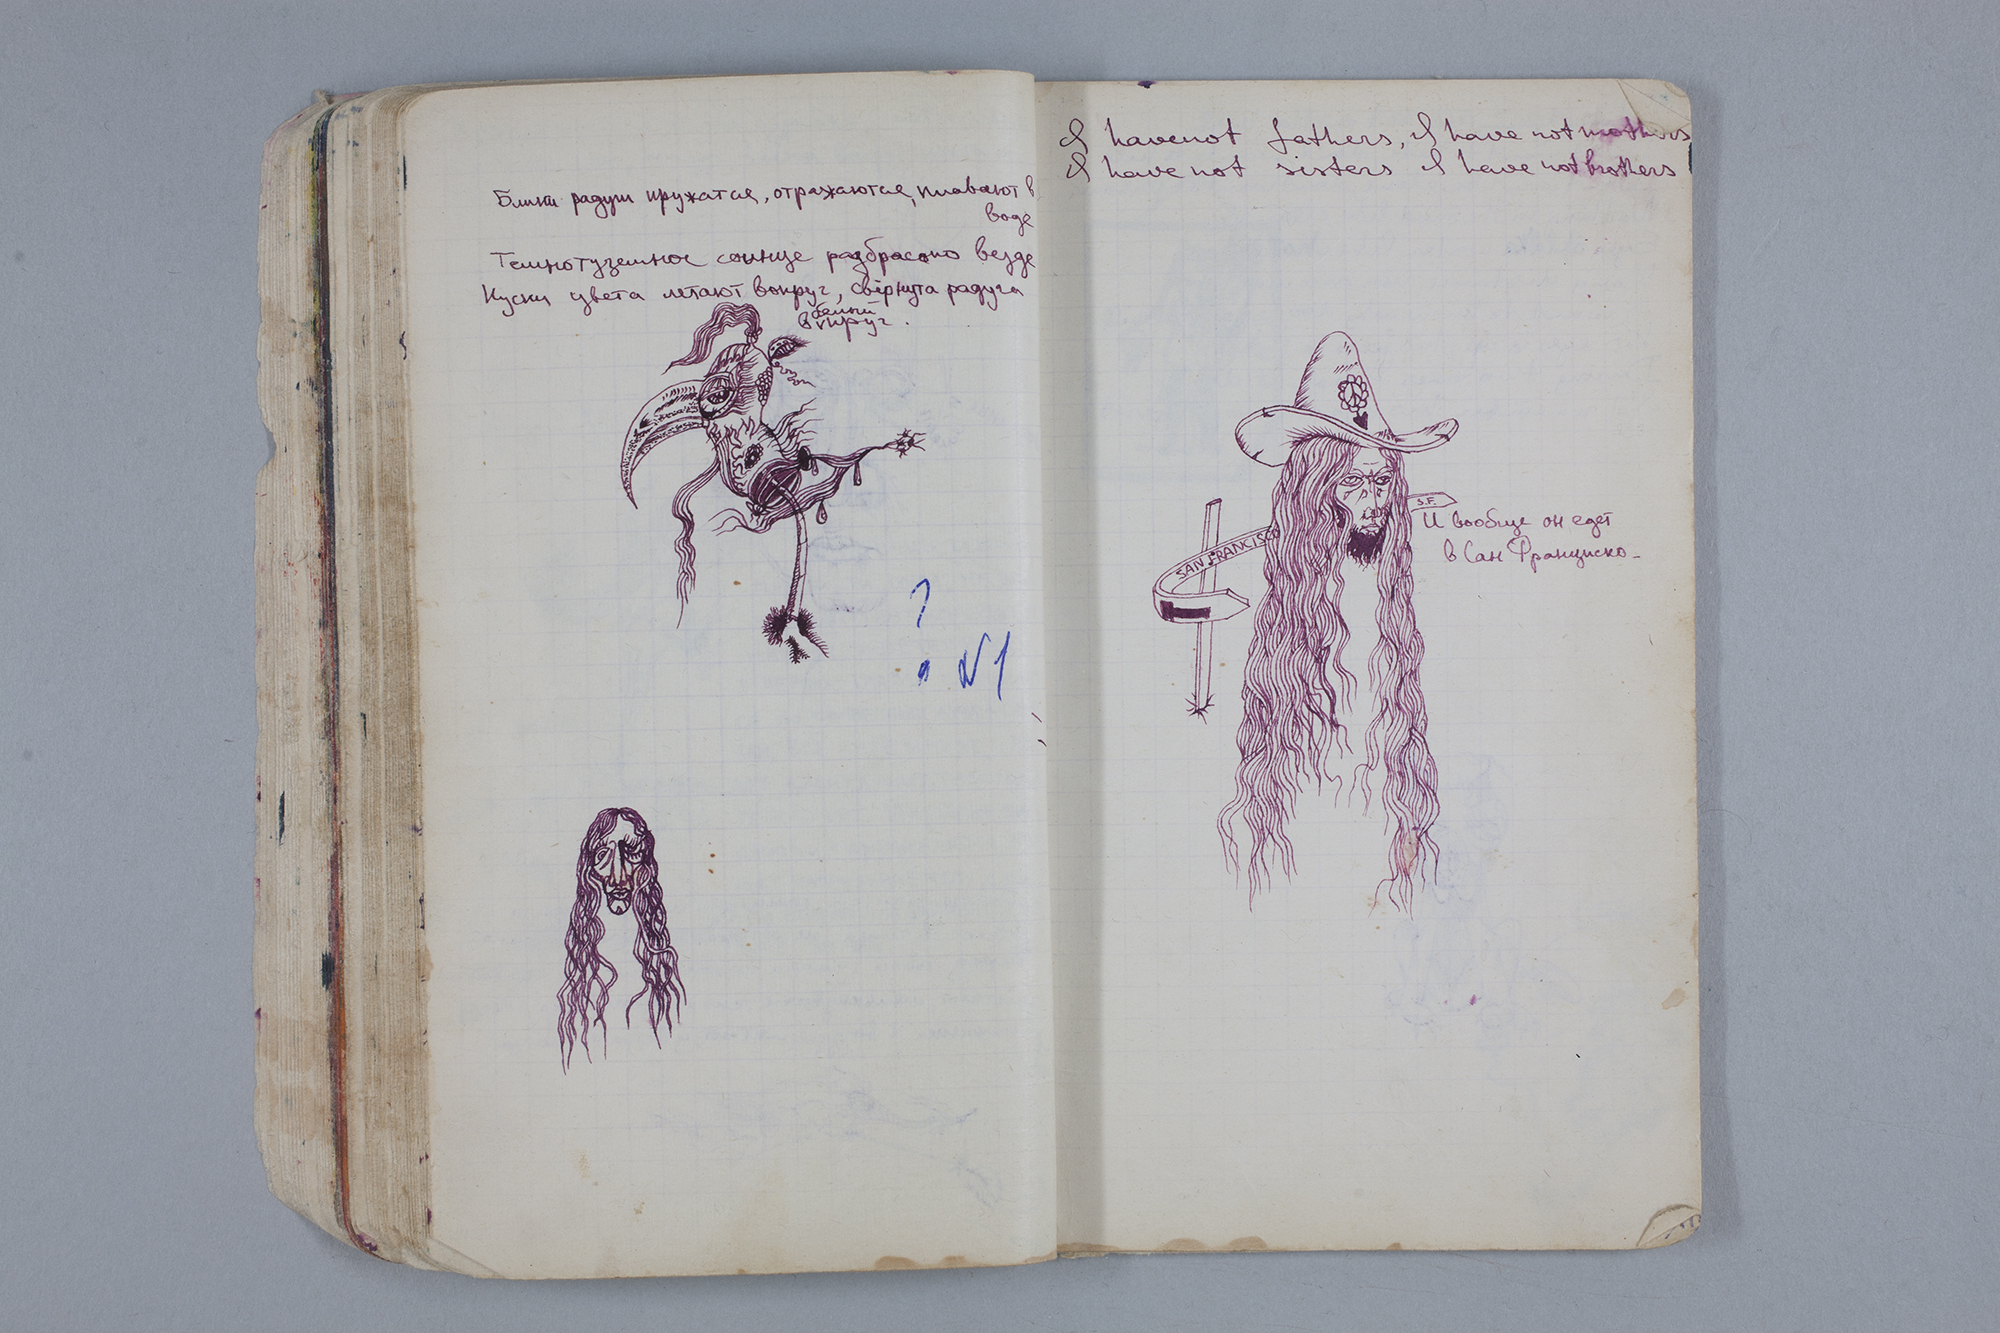 Блики радуги кружатся, отражаются, плавают в
воде
Темнотуземное солнце разбросано везде
Куски цвета летают вокруг, свёрнута радуга
белый
в круг.
?
№1
I havenot fathers, I have not mothers
I have not sisters I have not brothers
S.F.
SAN FRANCISCO
И вообще он едет
в Сан Франциско